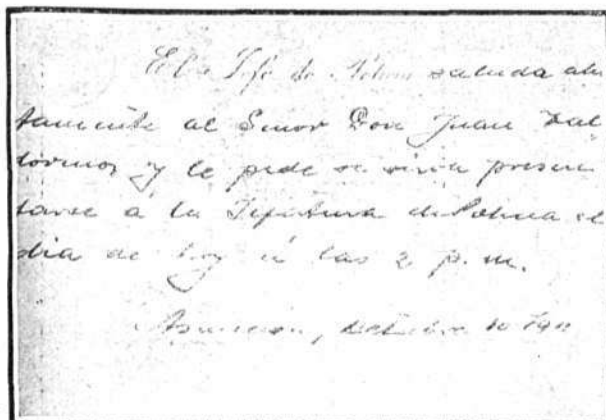 El Jefe de Policia saluda aten
tamente al Señor Don Juan Val
tormos y le pide se sirva presen
tarse a la Jefatura de Policia el
dia de hoy á las 2 p. m.
Asuncion, Octubre 10